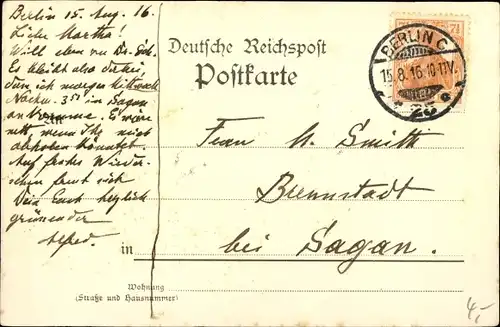 Berlin 15. Aug. 16.
Liebe Martha!
Will eben zu Dr.
Es bleibt also dabei,
daß ich morgen Mittwoch
Nachm. 3 51 in Sagan
ankomme. Es wäre
nett, wenn Ihr mich
abholen könntet.
Auf frohes Wieder-
sehen freut sich
Dein Euch herzlich
grüßender
Alfred.
Deutsche Reichspost
Postkarte
7½
BERLIN C
15.8.16.10-11V.
* 25 a
Frau M. Smith
Brennstadt
in bei Sagan.
Wohnung
(Straße und Hausnummer)
4,-